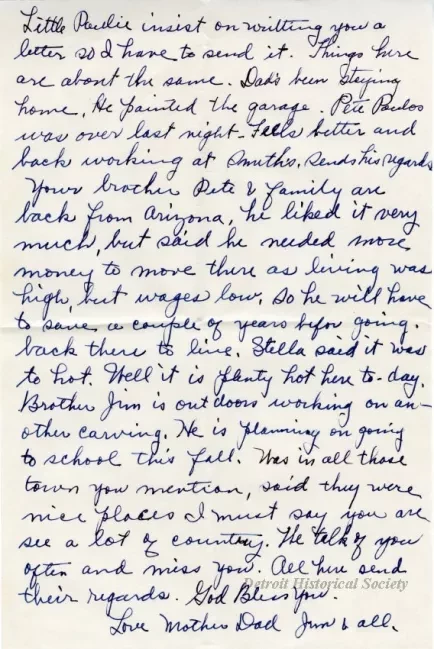 Little Paulie insist on writting you a
letter so I have to send it. Things here
are about the same. Dad's been staying
home. He painted the garage. Pete Paulos
was over last night - Feels better and
back working at Smith's, sends his regards
Your brother Pete & family are
back from Arizona, he liked it very
much, but said he needed more
money to move there as living was
high, but wages low. So he will have
to save a couple of years befor going
back there to live. Stella said it was
to hot. Well it is plenty hot here to-day.
Brother Jim is outdoors working on an-
other carving. He is planning on going
to school this fall. Was in all those
town you mention, said they were
nice places I must say you are
see a lot of country. We talk of you
often and miss you. All here send
their regards. God Bless You.
Detroit Historical Society
Love Mother Dad Jim & all.